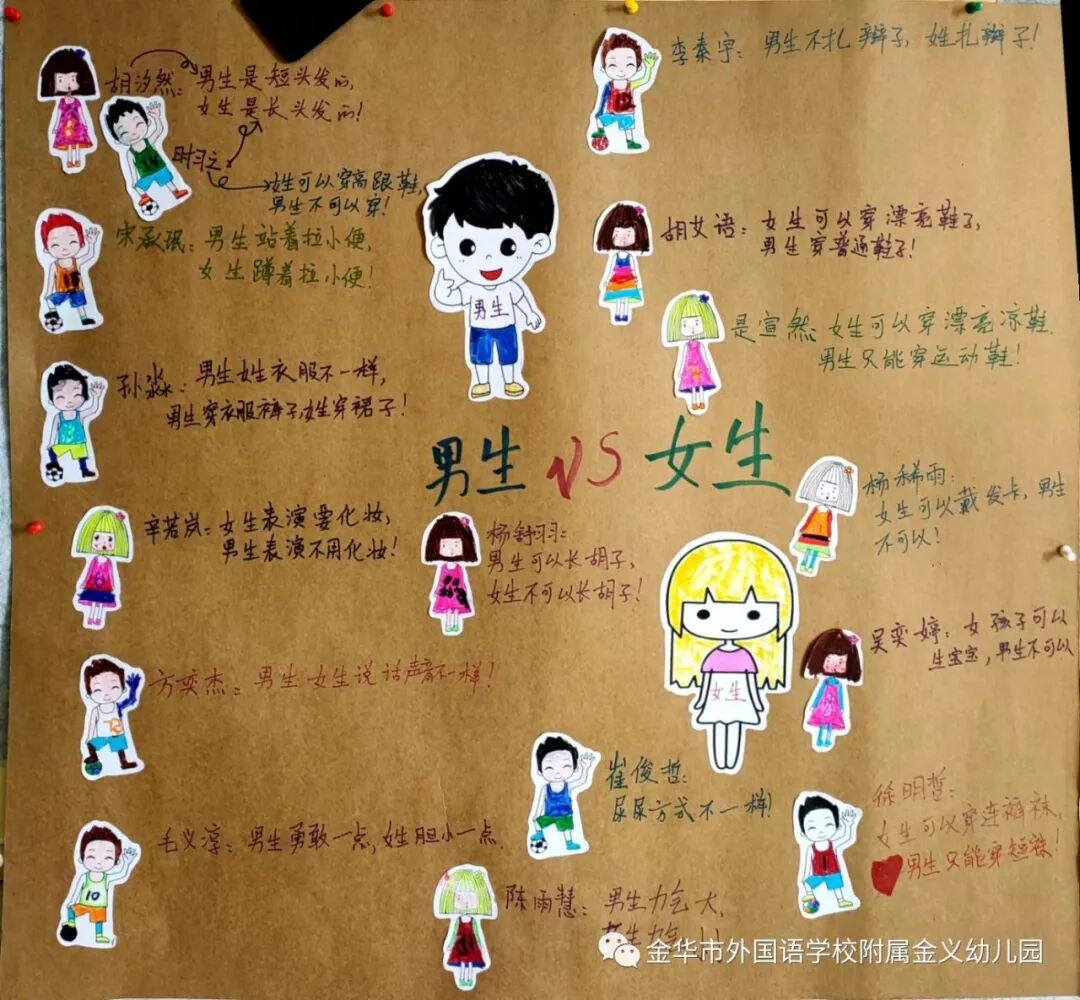 胡汐然：男生是短头发的，
女生是长头发的！
时习之：
女生可以穿高跟鞋，
男生不可以穿！
宋承珉：男生站着拉小便，
女生蹲着拉小便！
孙淼：男生女生衣服不一样，
男生穿衣服裤子，女生穿裙子！
辛若岚：女生表演要化妆，
男生表演不用化妆！
方奕杰：男生女生说话声音不一样！
毛义淳：男生勇敢一点，女生胆小一点。
男生
男生 VS 女生
杨舒羽：
男生可以长胡子，
女生不可以长胡子！
女生
崔俊哲：
尿尿方式不一样！
陈雨慧：男生力气大，
李秦宇：男生不扎辫子，女生扎辫子！
胡艾语：女生可以穿漂亮鞋子，
男生穿普通鞋子！
是宣然：女生可以穿漂亮凉鞋，
男生只能穿运动鞋！
杨稀雨：
女生可以戴发卡，男生
不可以！
吴奕婷：女孩子可以
生宝宝，男生不可以
徐明哲：
女生可以穿连裤袜，
男生只能穿短袜！
金华市外国语学校附属金义幼儿园